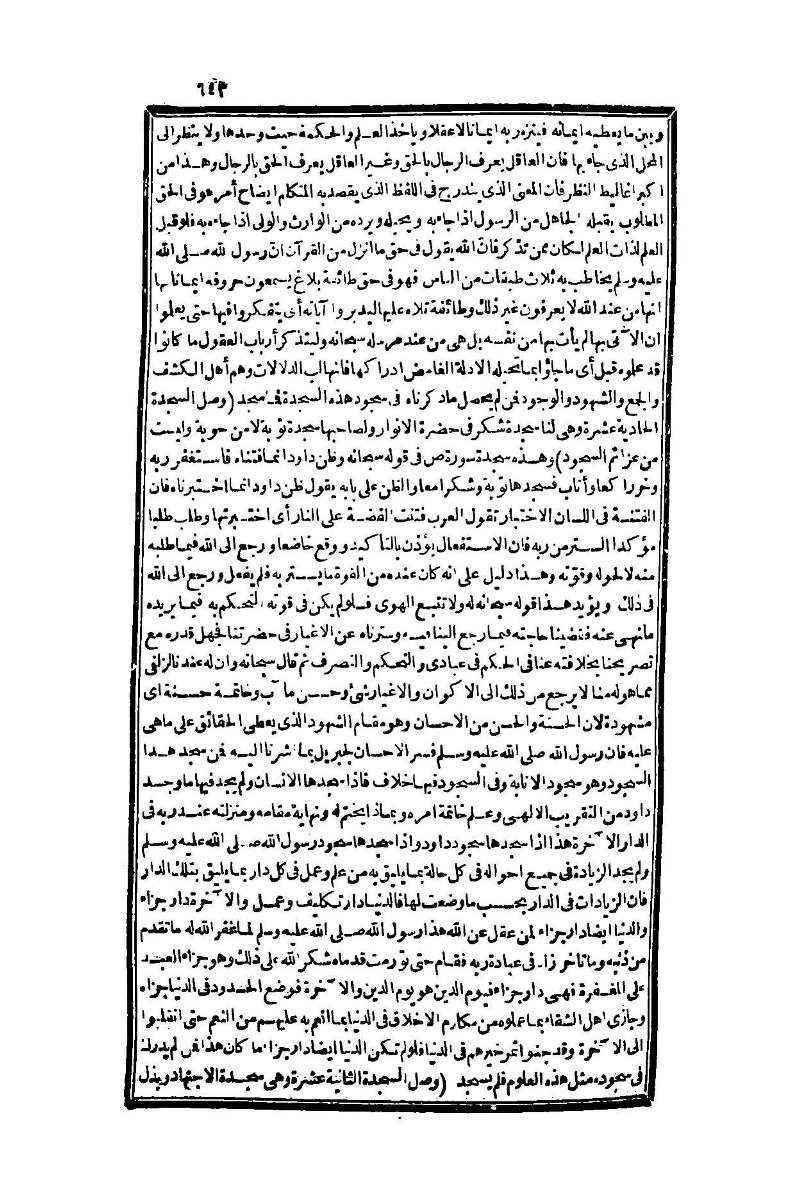 ٦٤٣
وبين ما يعطيه ايمانه فينزه ربه ايمانا لاعقلا ويأخذ العلم والحكمة حيث وجدها ولا ينظر الى
المحل الذى جاء بها فان العاقل يعرف الرجال بالحق وغير العاقل يعرف الحق بالرجال وهذا من
اكبر اغاليط النظر فان المعنى الذى يندرج فى اللفظ الذى يقصد به المتكلم ايضاح أمر هو فى الحق
المطلوب يقبله الجاهل من الرسول اذا جاءه به ويحيله ويرده من الوارث والولى اذا جاءه به فلو قبل
العلم لذات العلم لكان ممن تذكر فانّ الله يقول فى حق ما انزل من القرآن انّ رسول الله صلى الله
عليه وسلم يخاطب به ثلاث طبقات من الناس فهو فى حق طائفة بلاغ يسمعون حروفه ايمانا بها
انها من عند الله لا يعرفون غير ذلك وطائفة تلاه عليها ليدبروا آياته أى يتفكروا فيها حتى يعلموا
ان الآتى بها لم يأت بها من نفسه بل هى من عند مرسله سبحانه وليتذكر أرباب العقول ما كانوا
قد علموه قبل أى ما جاؤا بما تحيله الادلة الغامض ادراكها فانها لب الدلالات وهم أهل الكشف
والجمع والشهود والوجود فمن لم يحصل ماذكرناه فى سجود هذه السجدة فما سجد (وصل السجدة
الحادية عشرة وهى لنا سجدة شكر فى حضرة الانوار ولصاحبها سجدة توبة لا من حوبة وليست
من عزائم السجود) وهذه سجدة سورة ص فى قوله سبحانه وظن داود انما فتناه فاستغفر ربه
وخر راكعا وأناب فسجدها توبة وشكرا معا والظن على بابه يقول ظن داود انما اختبرناه فان
الفتنة فى اللسان الاختبار تقول العرب فتنت الفضة على النار أى اختبرتها وطلب طلبا
مؤكدا الستر من ربه فان الاستفعال يؤذن بالتأكيد ووقع خاضعا ورجع الى الله فيما طلبه
منه لا لحوله وقوته وهذا دليل على انه كان عنده من القوة ما يستتر به فلم يفعل ورجع الى الله
فى ذلك ويؤيد هذا قوله سبحانه له ولا تتبع الهوى فلو لم يكن فى قوته التحكم به فيما يريده
ما نهى عنه فقضينا حاجته فيما رجع الينا فيه وسترناه عن الاغيار فى حضرتنا فجهل قدره مع
تصريحنا بخلافته عنا فى الحكم فى عبادى والتحكم والتصرف ثم قال سبحانه وان له عندنا لزلفى
مما هو له منا لا يرجع من ذلك الى الاكوان والاغيار شئ وحسن مآب وخاتمة حسنة اى
مشهودة لان الحسنة والحسن من الاحسان وهو مقام الشهود الذى يعطى الحقائق على ماهى
عليه فان رسول الله صلى الله عليه وسلم فسر الاحسان لجبريل بما اشرنا اليه فمن سجد هذا
السجود وهو سجود الانابة وفى السجود فيها خلاف فاذا سجدها الانسان ولم يجد فيها ما وجد
داود من التقريب الالهى وعلم خاتمة امره وبماذا يختم له ونهاية مقامه ومنزلته عند ربه فى
الدار الآخرة هذا اذا سجدها سجود داود واذا سجدها سجود رسول الله صلى الله عليه وسلم
ولم يجد الزيادة فى جميع احواله فى كل حالة بما يليق به من علم وعمل فى كل دار بما يليق بتلك الدار
فان الزيادات فى الدار بحسب ما وضعت لها فالدنيا دار تكليف وعمل والآخرة دار جزاء
والدنيا ايضا دار جزاء لمن عقل عن الله هذا رسول الله صلى الله عليه وسلم لما غفر الله له ما تقدم
من ذنبه وما تأخر زاد فى عبادة ربه فقام حتى تورمت قدماه شكر الله على ذلك وهو جزاء العبد
على المغفرة فهى دار جزاء فيوم الدين هو يوم الدين والآخرة فوضع الحدود فى الدنيا جزاء
وجازى اهل الشقاء بما عملوه من مكارم الاخلاق فى الدنيا بما انعم به عليهم من النعم حتى انقلبوا
الى الآخرة وقد جنوا ثمر خيرهم فى الدنيا فلو لم تكن الدنيا ايضا دار جزاء ما كان هذا فمن لم يدرك
فى سجوده مثل هذه العلوم فلم يسجد (وصل السجدة الثانية عشرة وهى سجدة الاجتهاد وبذل